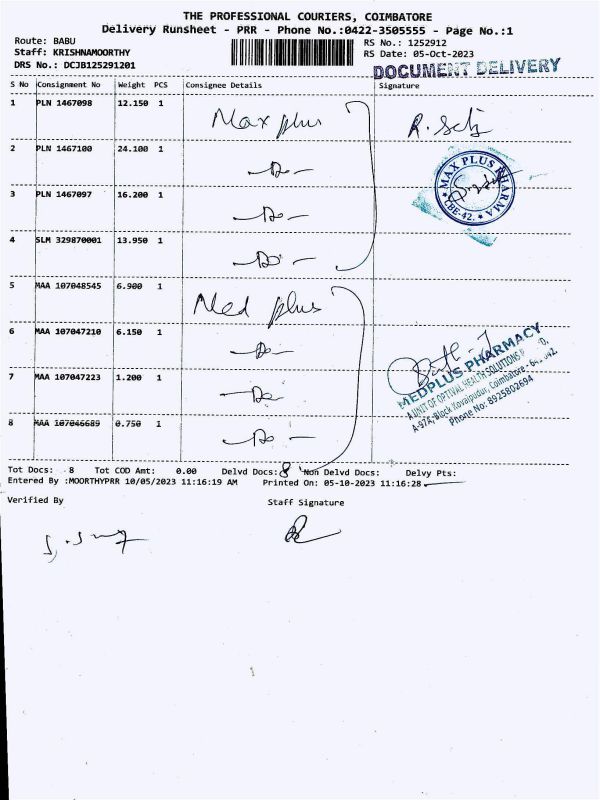 THE PROFESSIONAL COURIERS, COIMBATORE
Delivery Runsheet - PRR - Phone No.:0422-3505555 - Page No.:1
Route: BABU
Staff: KRISHNAMOORTHY
DRS No.: DCJB125291201
RS No.: 1252912
RS Date: 05-Oct-2023
DOCUMENT DELIVERY
S No Consignment No Weight PCS Consignee Details Signature
1 PLN 1467098 12.150 1 Max plus
2 PLN 1467100 24.100 1 -Do-
3 PLN 1467097 16.200 1 -Do-
4 SLM 329870001 13.950 1 -Do-
MAX PLUS PHARMA
CBE-42.
5 MAA 107048545 6.900 1 Med plus
6 MAA 107047210 6.150 1 -Do-
7 MAA 107047223 1.200 1 -Do-
8 MAA 107046689 0.750 1 -Do-
MEDPLUS PHARMACY
A UNIT OF OPTIVAL HEALTH SOLUTIONS
A-97A, Block Kovaipudur, Coimbatore -
Phone No: 8925802694
Tot Docs: 8 Tot COD Amt: 0.00 Delvd Docs: 8 Non Delvd Docs: Delvy Pts:
Entered By :MOORTHYPRR 10/05/2023 11:16:19 AM Printed On: 05-10-2023 11:16:28
Verified By Staff Signature